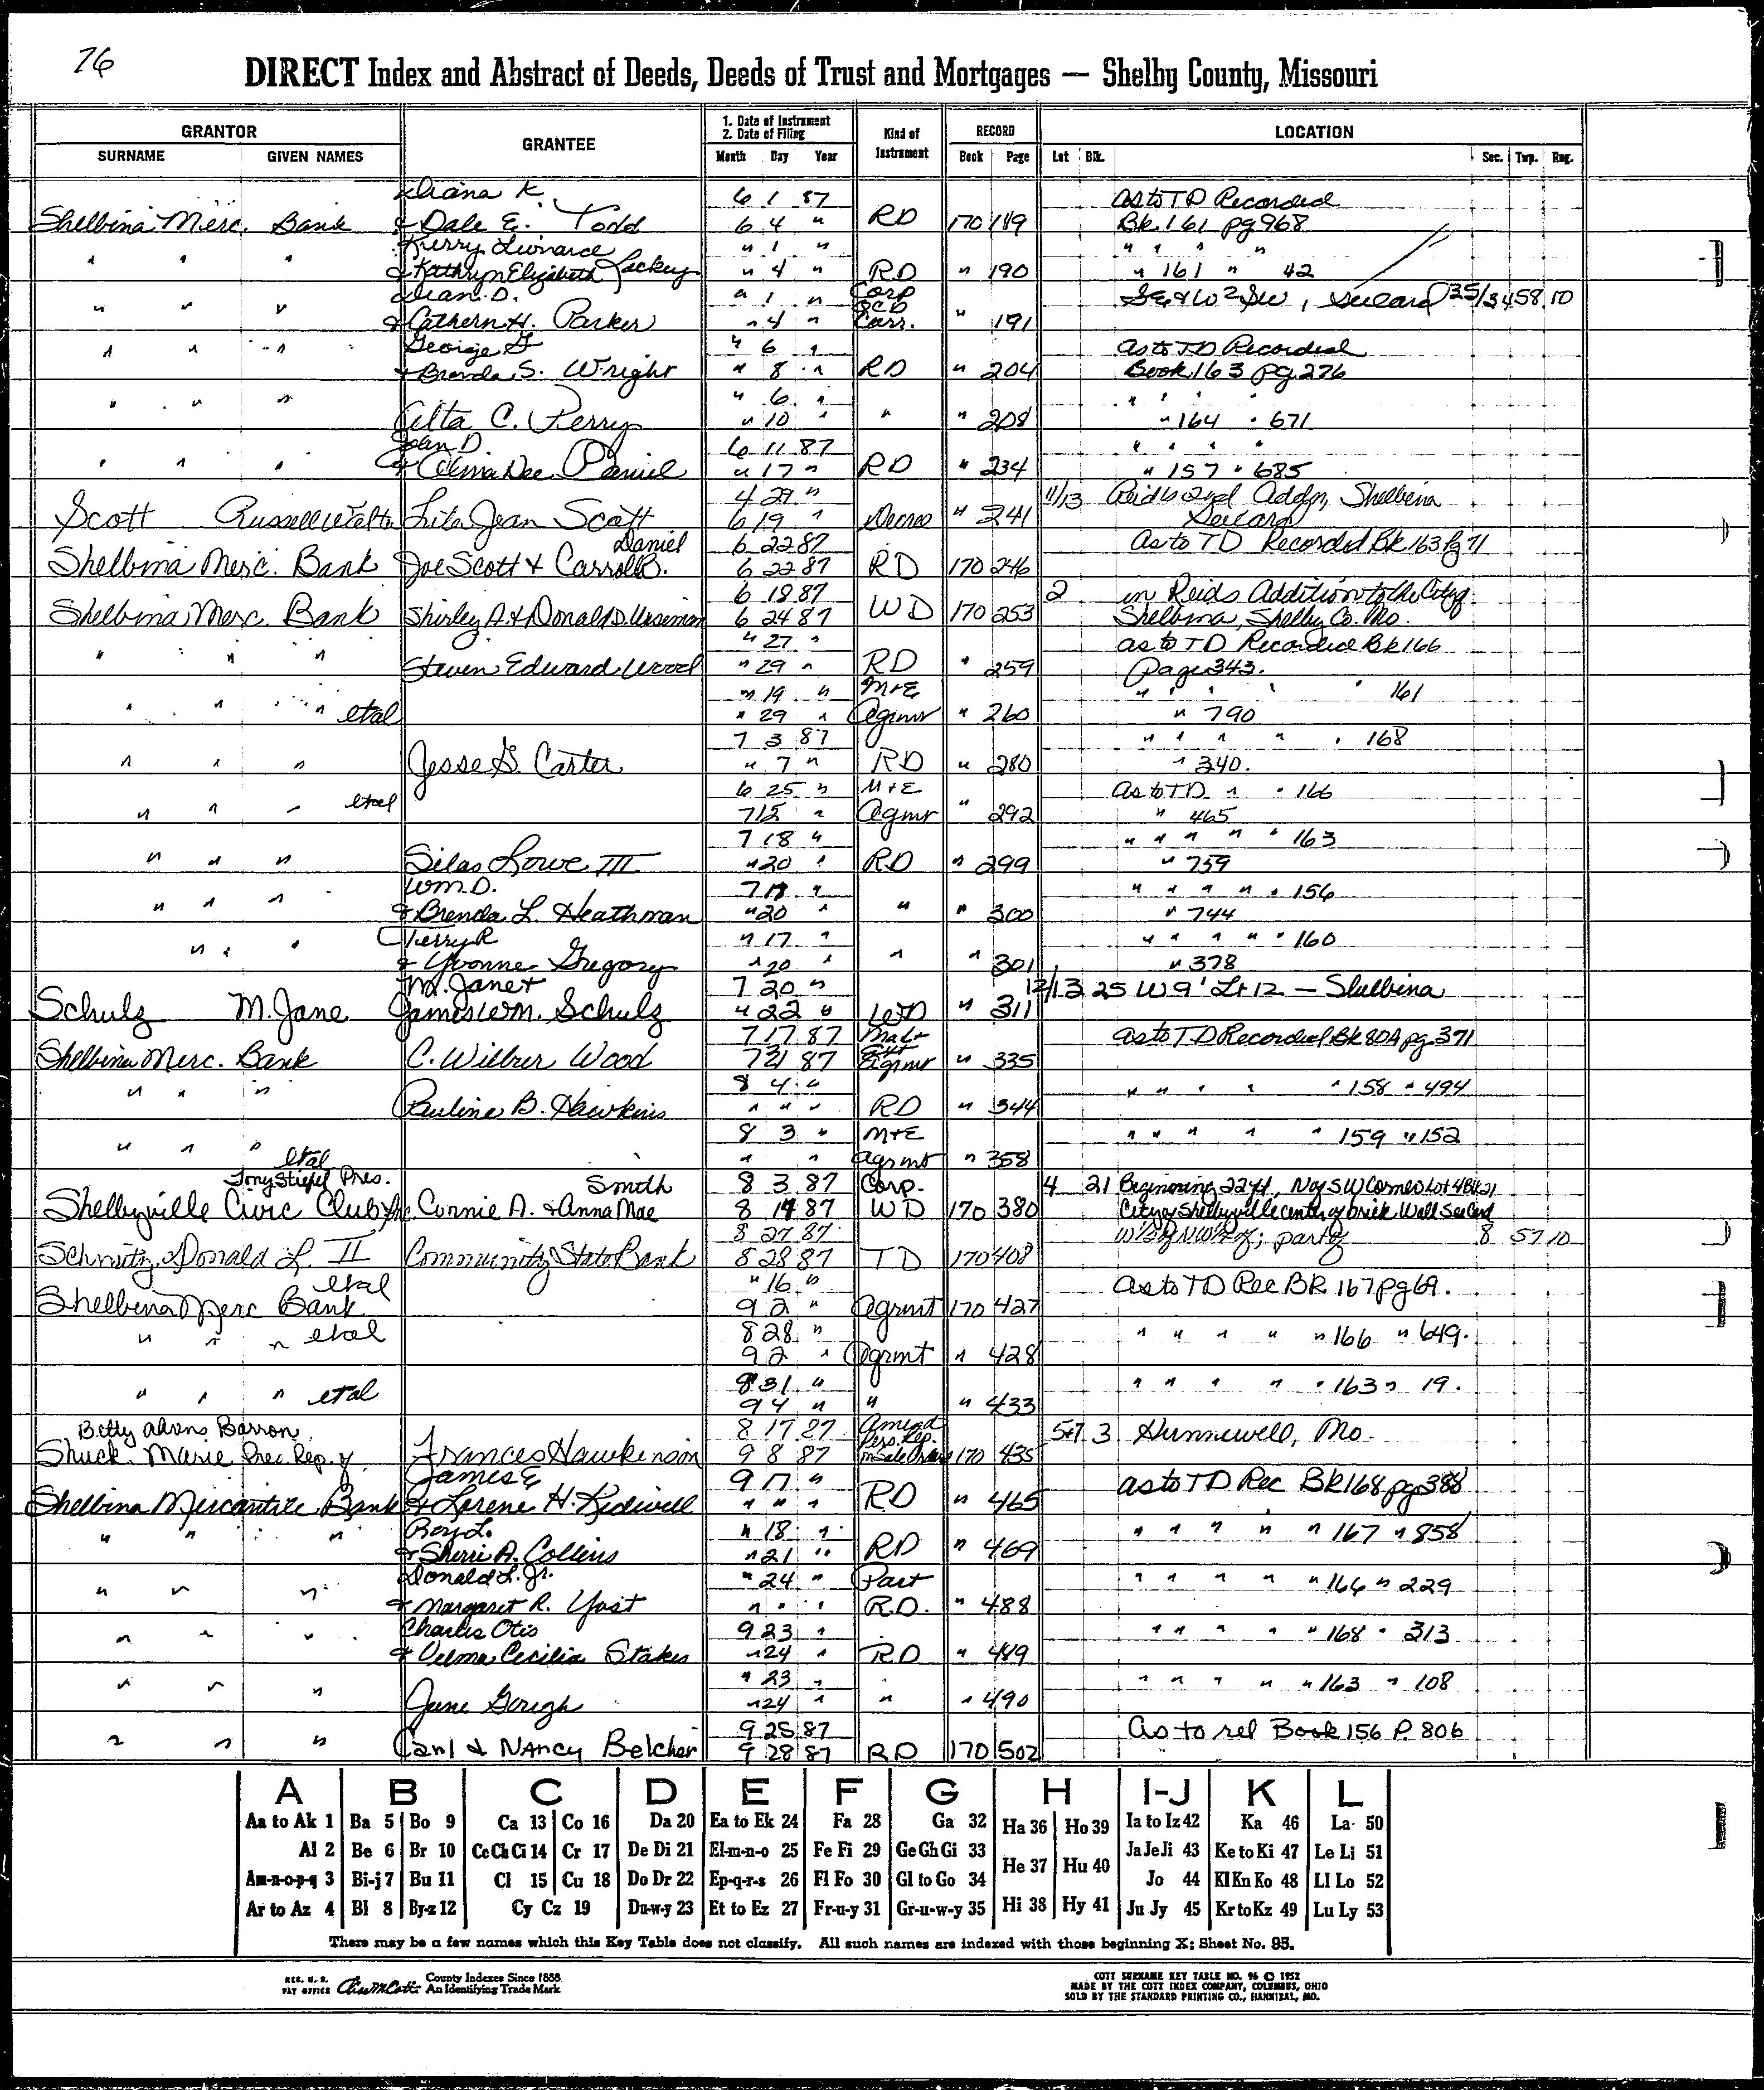 76
DIRECT Index and Abstract of Deeds, Deeds of Trust and Mortgages — Shelby County, Missouri
GRANTOR
SURNAME GIVEN NAMES
GRANTEE
1. Date of Instrument
2. Date of Filing
Month Day Year
Kind of Instrument
RECORD
Book Page
LOCATION
Lot Blk. Sec. Twp. Rng.
Diana K. 6 1 87 As to TD Recorded
Shelbina Merc. Bank & Dale E. Todd 6 4 " RD 170 189 Bk. 161 pg 968
Kerry Leonard " 1 " " " " "
" " " & Kathryn Elizabeth Lackey " 4 " RD " 190 " 161 " 42
Dean D. " 1 " Corp QCD
" " " & Cathern H. Parker " 4 " Corr. " 191 35/34 58 10
George G " 6 " As to TD Recorded
" " " & Brenda S. Wright " 8 " RD " 204 Book 163 pg 276
" " " " 6 " " " " "
Alta C. Perry " 10 " " " 208 " 164 " 671
John D. 6 11 87 " " " "
" " " & Celma Dee Daniel " 17 " RD " 234 " 157 " 685
4 29 " 11/13 Reids 2nd Addn, Shelbina
Scott Russell Walter Lila Jean Scott 6 19 " Decree " 241 See card
Daniel 6 22 87 As to TD Recorded Bk 163 Pg 71
Shelbina Merc. Bank Joe Scott & Carroll B. 6 22 87 RD 170 246
6 18 87 2 in Reids Addition to the City of
Shelbina Merc. Bank Shirley A. & Donald D. Wiseman 6 24 87 WD 170 253 Shelbina, Shelby Co. Mo.
" 27 " as to TD Recorded Bk 166
" " " Steven Edward Wood " 29 " RD " 259 Page 343.
" 19 " M+E " " " " 161
" " " etal " 29 " Agrmt " 260 " 790
7 3 87 " " " " " 168
" " " Jesse G. Carter " 7 " RD " 280 " 340.
6 25 " M+E As to TD " " 166
" " " etal 7 15 " Agmt " 292 " 465
7 18 " " " " " " 163
" " " Silas Lowe III " 20 " RD " 299 " 759
Wm. D. 7 17 " " " " " " 156
" " " & Brenda L. Heathman " 20 " " " 300 " 744
Terry R " 17 " " " " " " 160
" " " & Yvonne Gregory " 20 " " " 301 " 378
M. Jane & 7 20 " 12/13 25 W 9' Lt 12 — Shelbina
Schulz M. Jane James Wm. Schulz " 22 " WD " 311
7 17 87 Mat & Ext as to TD Recorded Bk 80A pg 371
Shelbina Merc. Bank C. Wilbur Wood 7 31 87 Agrmt " 335
8 4 " " " " " " 158 " 494
" " " Pauline B. Hawkins " " " RD " 344
8 3 " M+E " " " " " 159 " 152
" " " etal " " Agrmt " 358
Tony Stiefel Pres. Smith 8 3 87 Corp. 4 21 Beginning 22 ft, N of SW Corner Lot 4 Blk 21
Shelbyville Civic Club Inc. Connie A. & Anna Mae 8 14 87 WD 170 380 City of Shelbyville center of brick wall See Card
8 27 87 8 57 10
Schmitz, Donald L. II Community State Bank 8 28 87 TD 170 408
etal " 16 " As to TD Rec BK 167 pg 69.
Shelbina Merc Bank 9 2 " Agrmt 170 427
" " " etal 8 28 " " " " " " 166 " 649.
9 2 " Agrmt " 428
8 31 " " " " " " 163 " 19.
" " " etal 9 4 " " " 433
Betty Ahrens Barron 8 17 87 Amend Pers. Rep. 5+7 3 Hunnewell, Mo.
Shuck Marie Pres. Rep. of Frances Hawkinson 9 8 87 170 435
James E 9 17 " as to TD Rec Bk 168 pg 388
Shelbina Mercantile Bank & Lorene H. Kidwell " " " RD " 465
Boyd L. " 18 " " " " " " 167 " 858
" " " & Sherri A. Collins " 21 " RD " 469
Donald L. Jr. " 24 " Part " " " " " 166 " 229
" " " & Margaret R. Yost " " " R.D. " 488
Charles Otis 9 23 " " " " " " 168 " 313
" " " & Velma Cecilia Stakes " 24 " RD " 489
" 23 " " " " " " 163 " 108
" " " June " 24 " " " 490
9 25 87 As to rel Book 156 P. 806
" " " Carl & Nancy Belcher 9 28 87 RD 170 502
A B C D E F G H I-J K L
Aa to Ak 1 Ba 5 Bo 9 Ca 13 Co 16 Da 20 Ea to Ek 24 Fa 28 Ga 32 Ha 36 Ho 39 Ia to Iz 42 Ka 46 La 50
Al 2 Be 6 Br 10 Ce Ch Ci 14 Cr 17 De Di 21 El-m-n-o 25 Fe Fi 29 Ge Gh Gi 33 He 37 Hu 40 Ja Je Ji 43 Ke to Ki 47 Le Li 51
Am-n-o-p-q 3 Bi-j 7 Bu 11 Cl 15 Cu 18 Do Dr 22 Ep-q-r-s 26 Fl Fo 30 Gl to Go 34 Jo 44 Kl Kn Ko 48 Ll Lo 52
Ar to Az 4 Bl 8 By-z 12 Cy Cz 19 Du-w-y 23 Et to Ez 27 Fr-u-y 31 Gr-u-w-y 35 Hi 38 Hy 41 Ju Jy 45 Kr to Kz 49 Lu Ly 53
There may be a few names which this Key Table does not classify. All such names are indexed with those beginning X; Sheet No. 95.
REG. U. S. PAT OFFICE County Indexes Since 1888 An Identifying Trade Mark
COTT SURNAME KEY TABLE NO. 96 © 1952
MADE BY THE COTT INDEX COMPANY, COLUMBUS, OHIO
SOLD BY THE STANDARD PRINTING CO., HANNIBAL, MO.